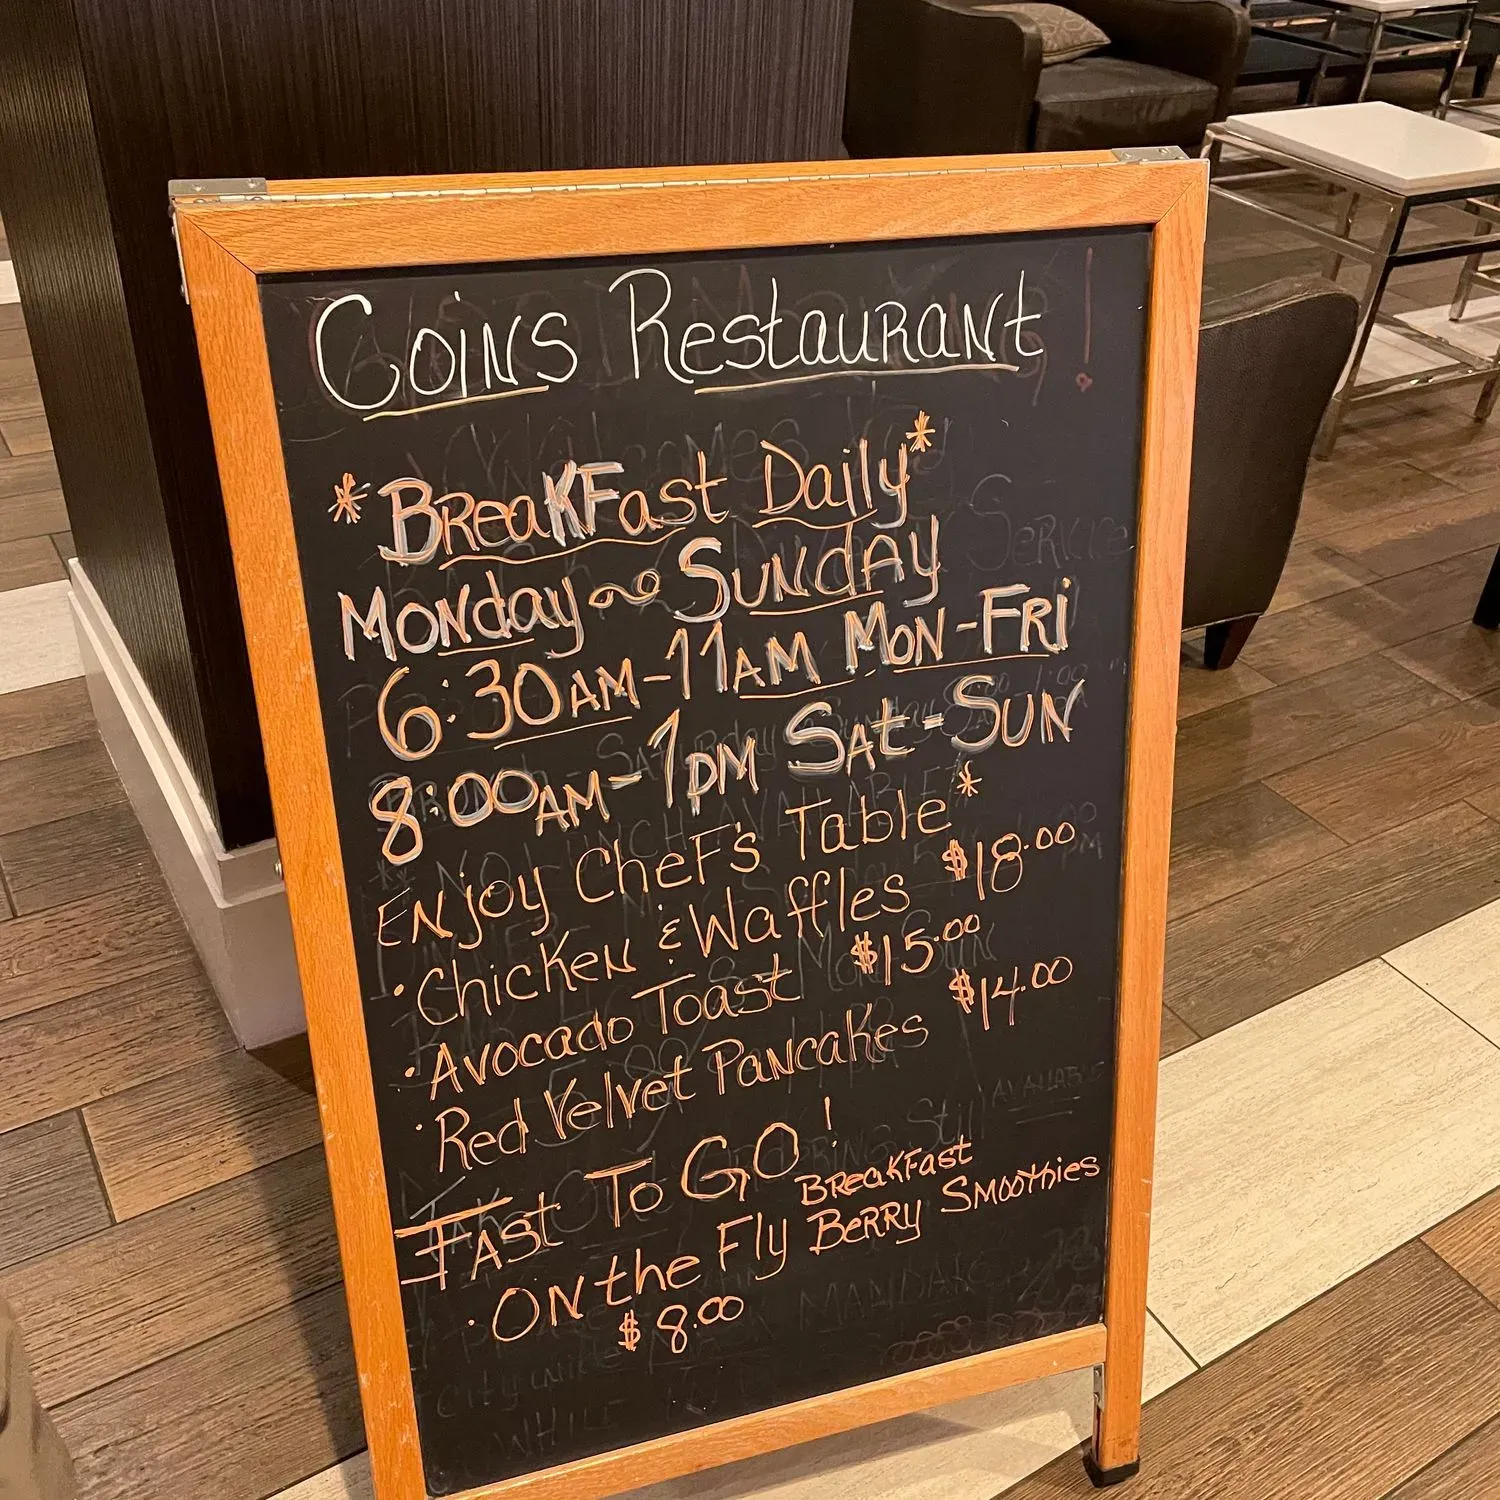 Coins Restaurant
*Breakfast Daily*
Monday ~ Sunday
6:30AM-11AM Mon-Fri
8:00AM-1PM Sat-Sun
Enjoy Chef's Table*
• Chicken & Waffles $18.00
• Avocado Toast $15.00
• Red Velvet Pancakes $14.00
Fast To GO!
• On the Fly Breakfast Berry Smoothies
$8.00